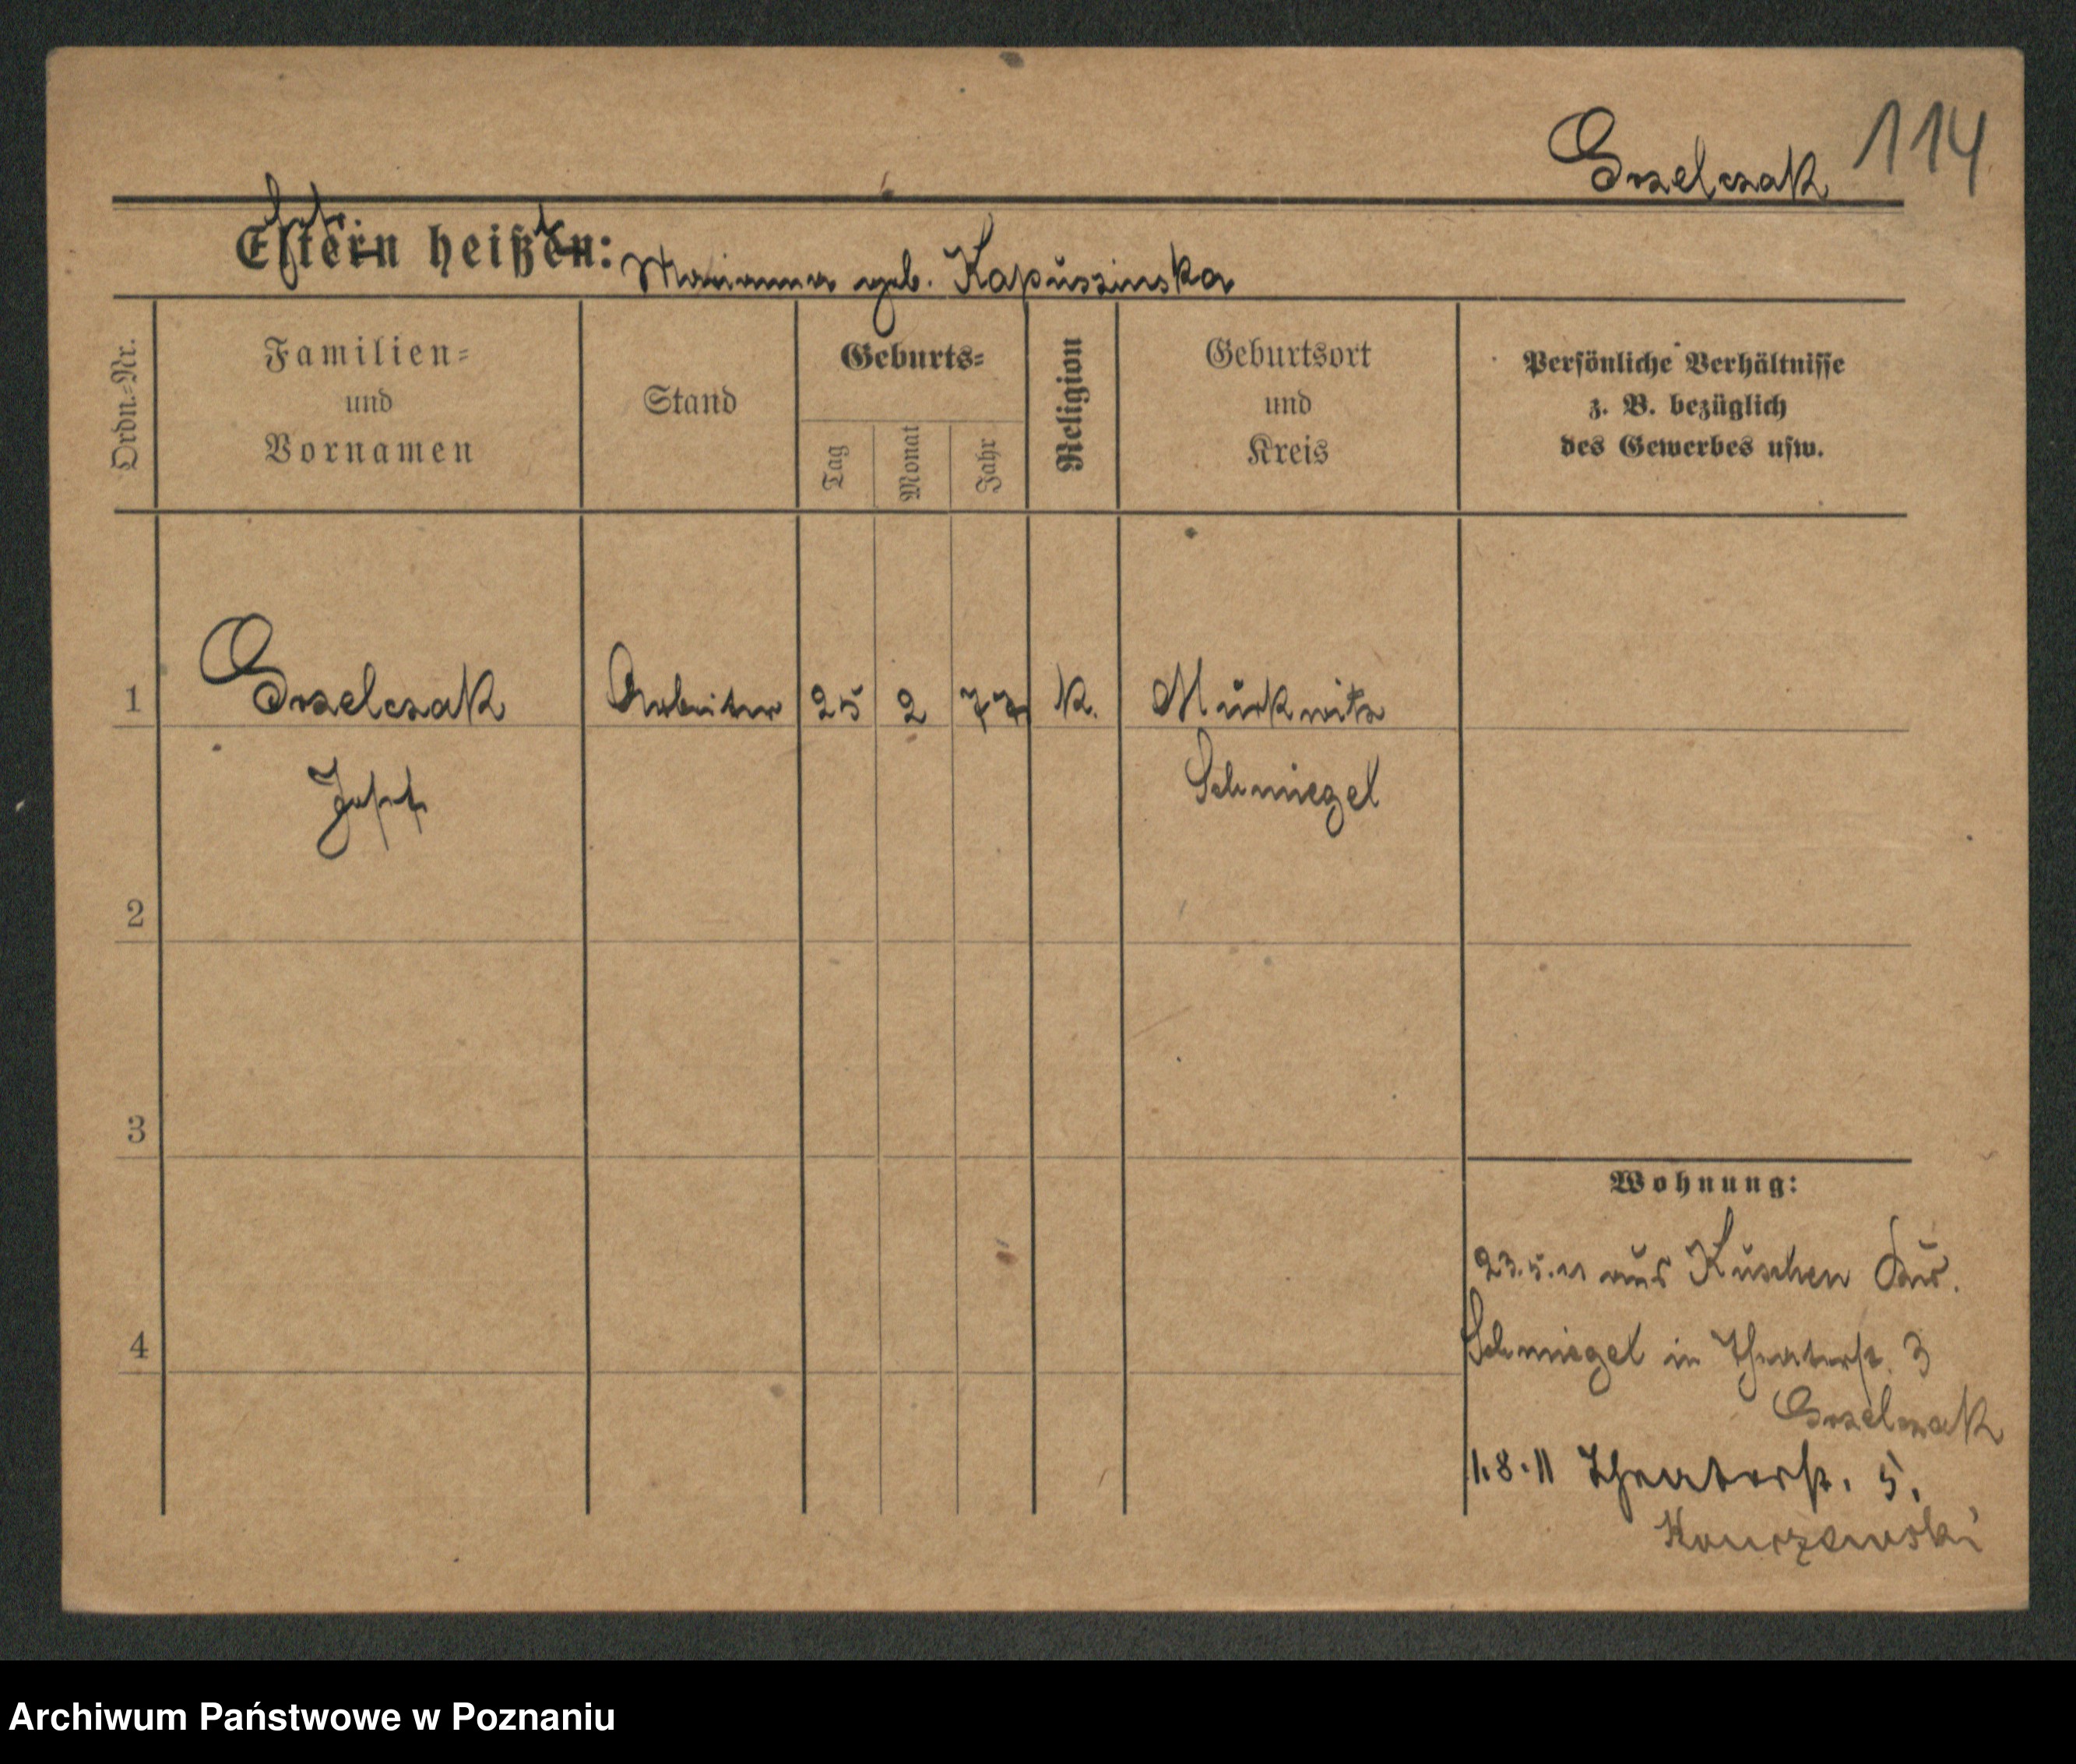 Goszelczak 114
Eltern heißen: Ehefr. heißt Marianna geb. Kapuszinska
Ordn.-Nr.
Familien-
und
Vornamen
Stand
Geburts-
Tag
Monat
Jahr
Religion
Geburtsort
und
Kreis
Persönliche Verhältnisse
z. B. bezüglich
des Gewerbes usw.
1 Arbeiter 25 2 77 k. Murkwitz
Josef Schmiegel
2
3
Wohnung:
23.5.11 aus Kuschen
4
Schmiegel in Theaterst. 3
1.8.11 Theaterst. 5.
Archiwum Państwowe w Poznaniu